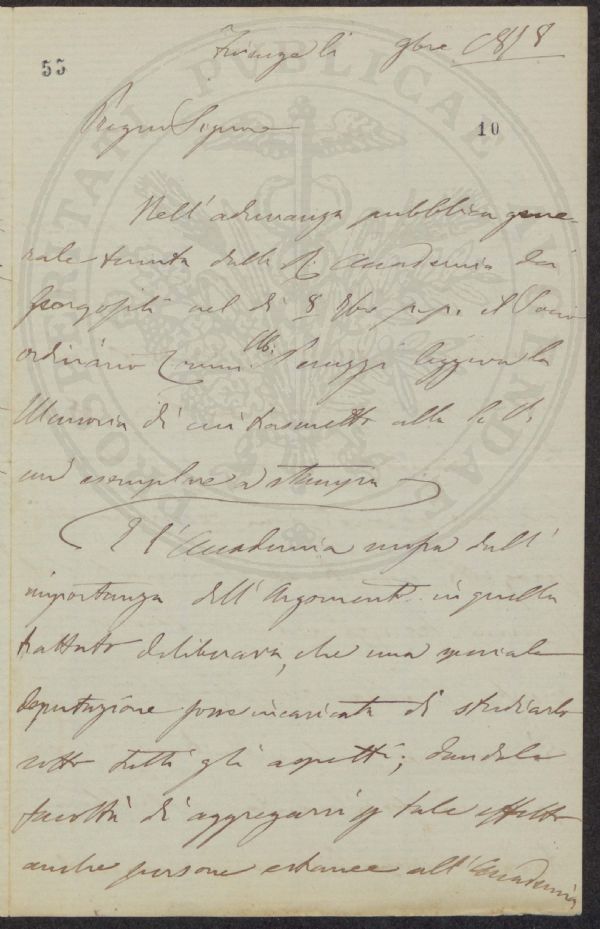 55
Firenze li 9bre 1878
10
Pregmo Signore
Nell' adunanza pubblica gene-
rale tenuta dalla R. Accademia dei
Georgofili nel dì 8 p.p. il Socio
ordinario Comm. Ub. Peruzzi leggeva la
Memoria di cui trasmetto alla S. V.
un' esemplare a stampa
E l' Accademia mossa dall'
importanza dell' Argomento in quella
trattato deliberava, che una speciale
deputazione fosse incaricata di studiarlo
sotto tutti gli aspetti; dandole
facoltà di aggregarsi p tale effetto
anche persone estranee all' Accademia
PROSPERITATI PUBLICAE AUGENDAE